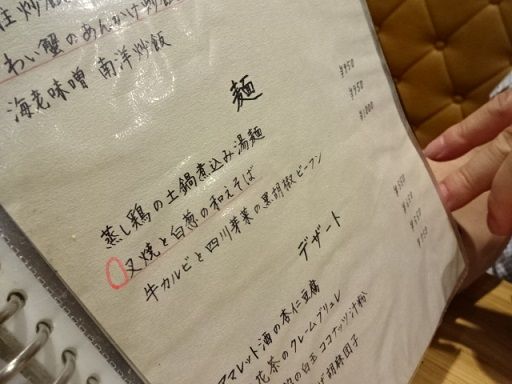 炒飯
わい蟹のあんかけ炒飯
海老味噌 南洋炒飯
麺
蒸し鶏の土鍋煮込み湯麺
叉焼と白葱の和えそば
牛カルビと四川芽菜の黒胡椒ビーフン
¥950
¥950
¥1000
デザート
アマレット酒の杏仁豆腐
花茶のクレームブリュレ
の白玉 ココナッツ汁粉
胡麻団子